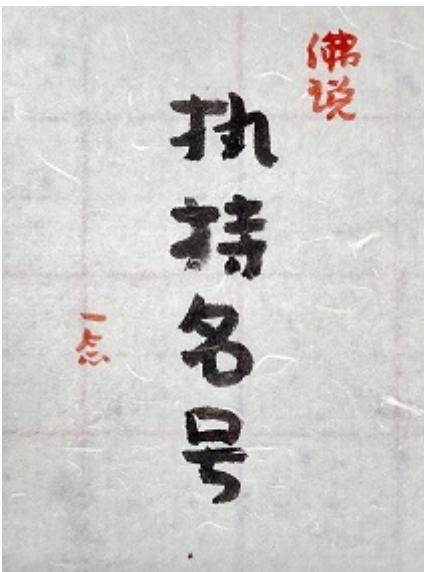 佛说
执持名号
一念